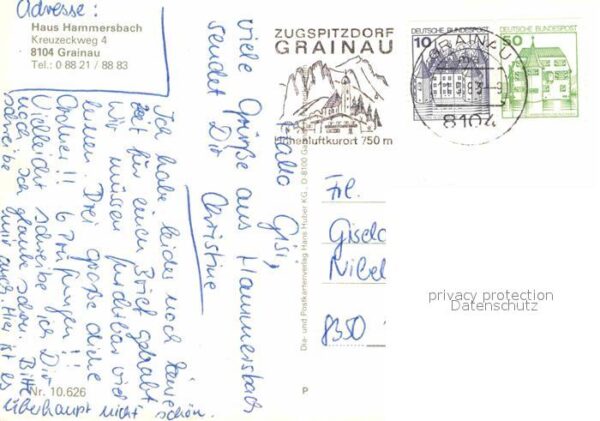 Adresse:
Haus Hammersbach
Kreuzeckweg 4
8104 Grainau
Tel.: 0 88 21 / 88 83
Hallo Gisi,
viele Grüße aus Hammersbach
sendet Dir
Christine
Ich habe leider noch keine
Zeit für einen Brief gehabt
Wir müssen furchtbar viel
lernen. Drei große dicke
Ordner!! 6 Prüfungen!!
Vielleicht schreibe ich Dir
noch. Ich glaube schon. Bitte
schreibe mir auch. Hier ist es
überhaupt nicht schön.
Nr. 10.626
ZUGSPITZDORF
GRAINAU
Höhenluftkurort 750 m
DEUTSCHE BUNDESPOST
10
DEUTSCHE BUNDESPOST
50
GRAINAU
8104
Dia- und Postkartenverlag Hans Huber KG, D-8100 Ga
P
Frl.
Gisela
Nibel
8350
privacy protection
Datenschutz